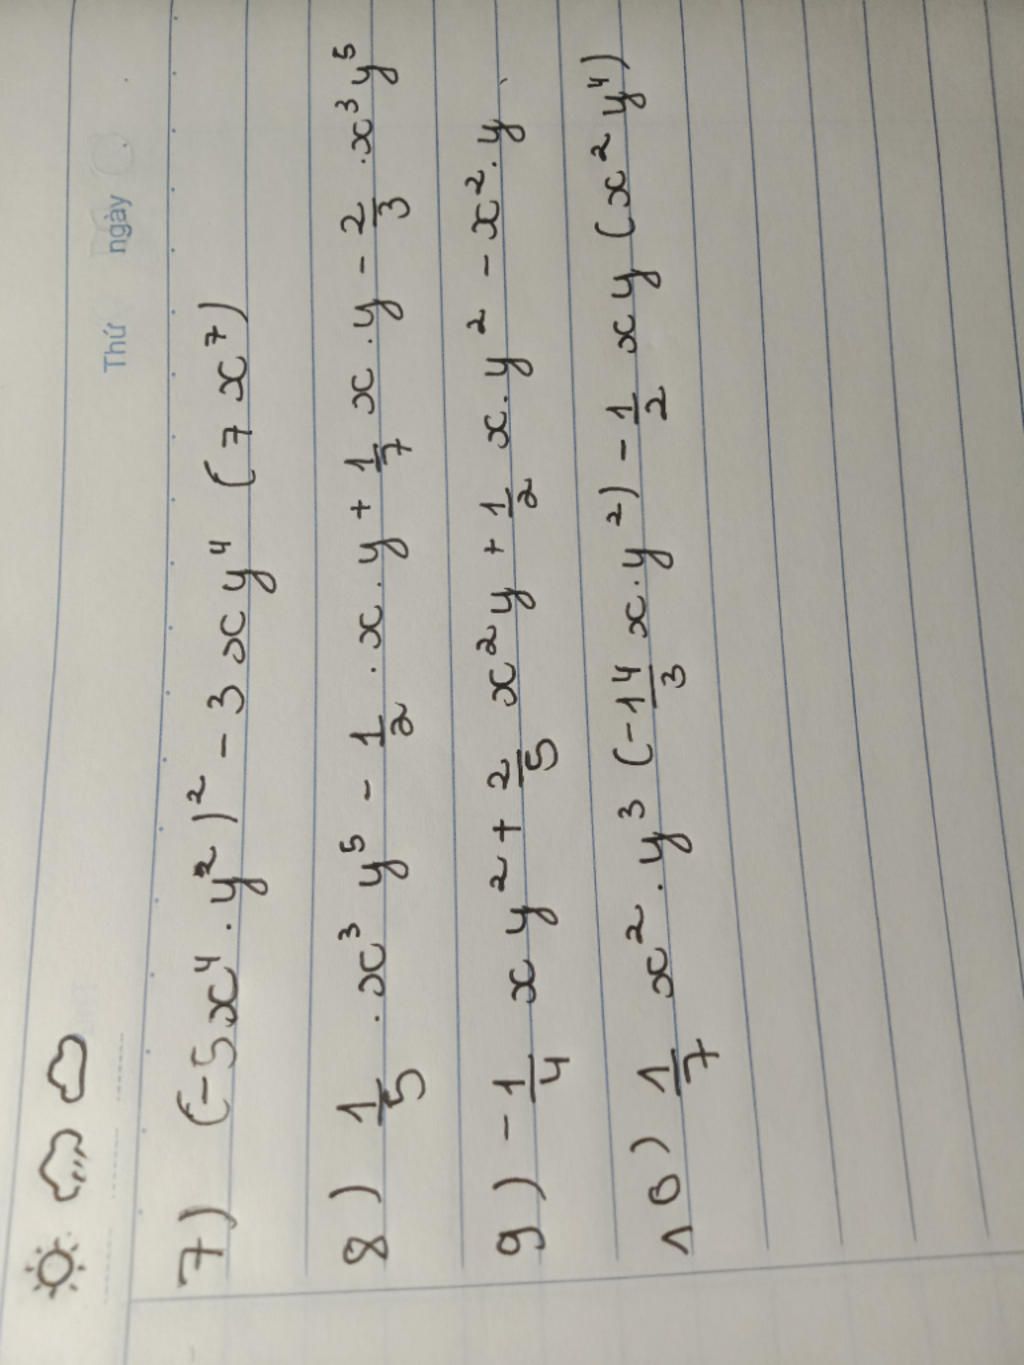 Thứ ngày
7) (-5x⁴.y²)² - 3xy⁴ (7x⁷)
8) 1/5 .x³ y⁵ - 1/2 .x.y + 1/7 x.y - 2/3 .x³y⁵
9) -1/4 x y² + 2/5 x²y + 1/2 x.y² - x².y
10) 1/7 x².y³ (-14/3 x.y²) - 1/2 xy (x²y⁴)